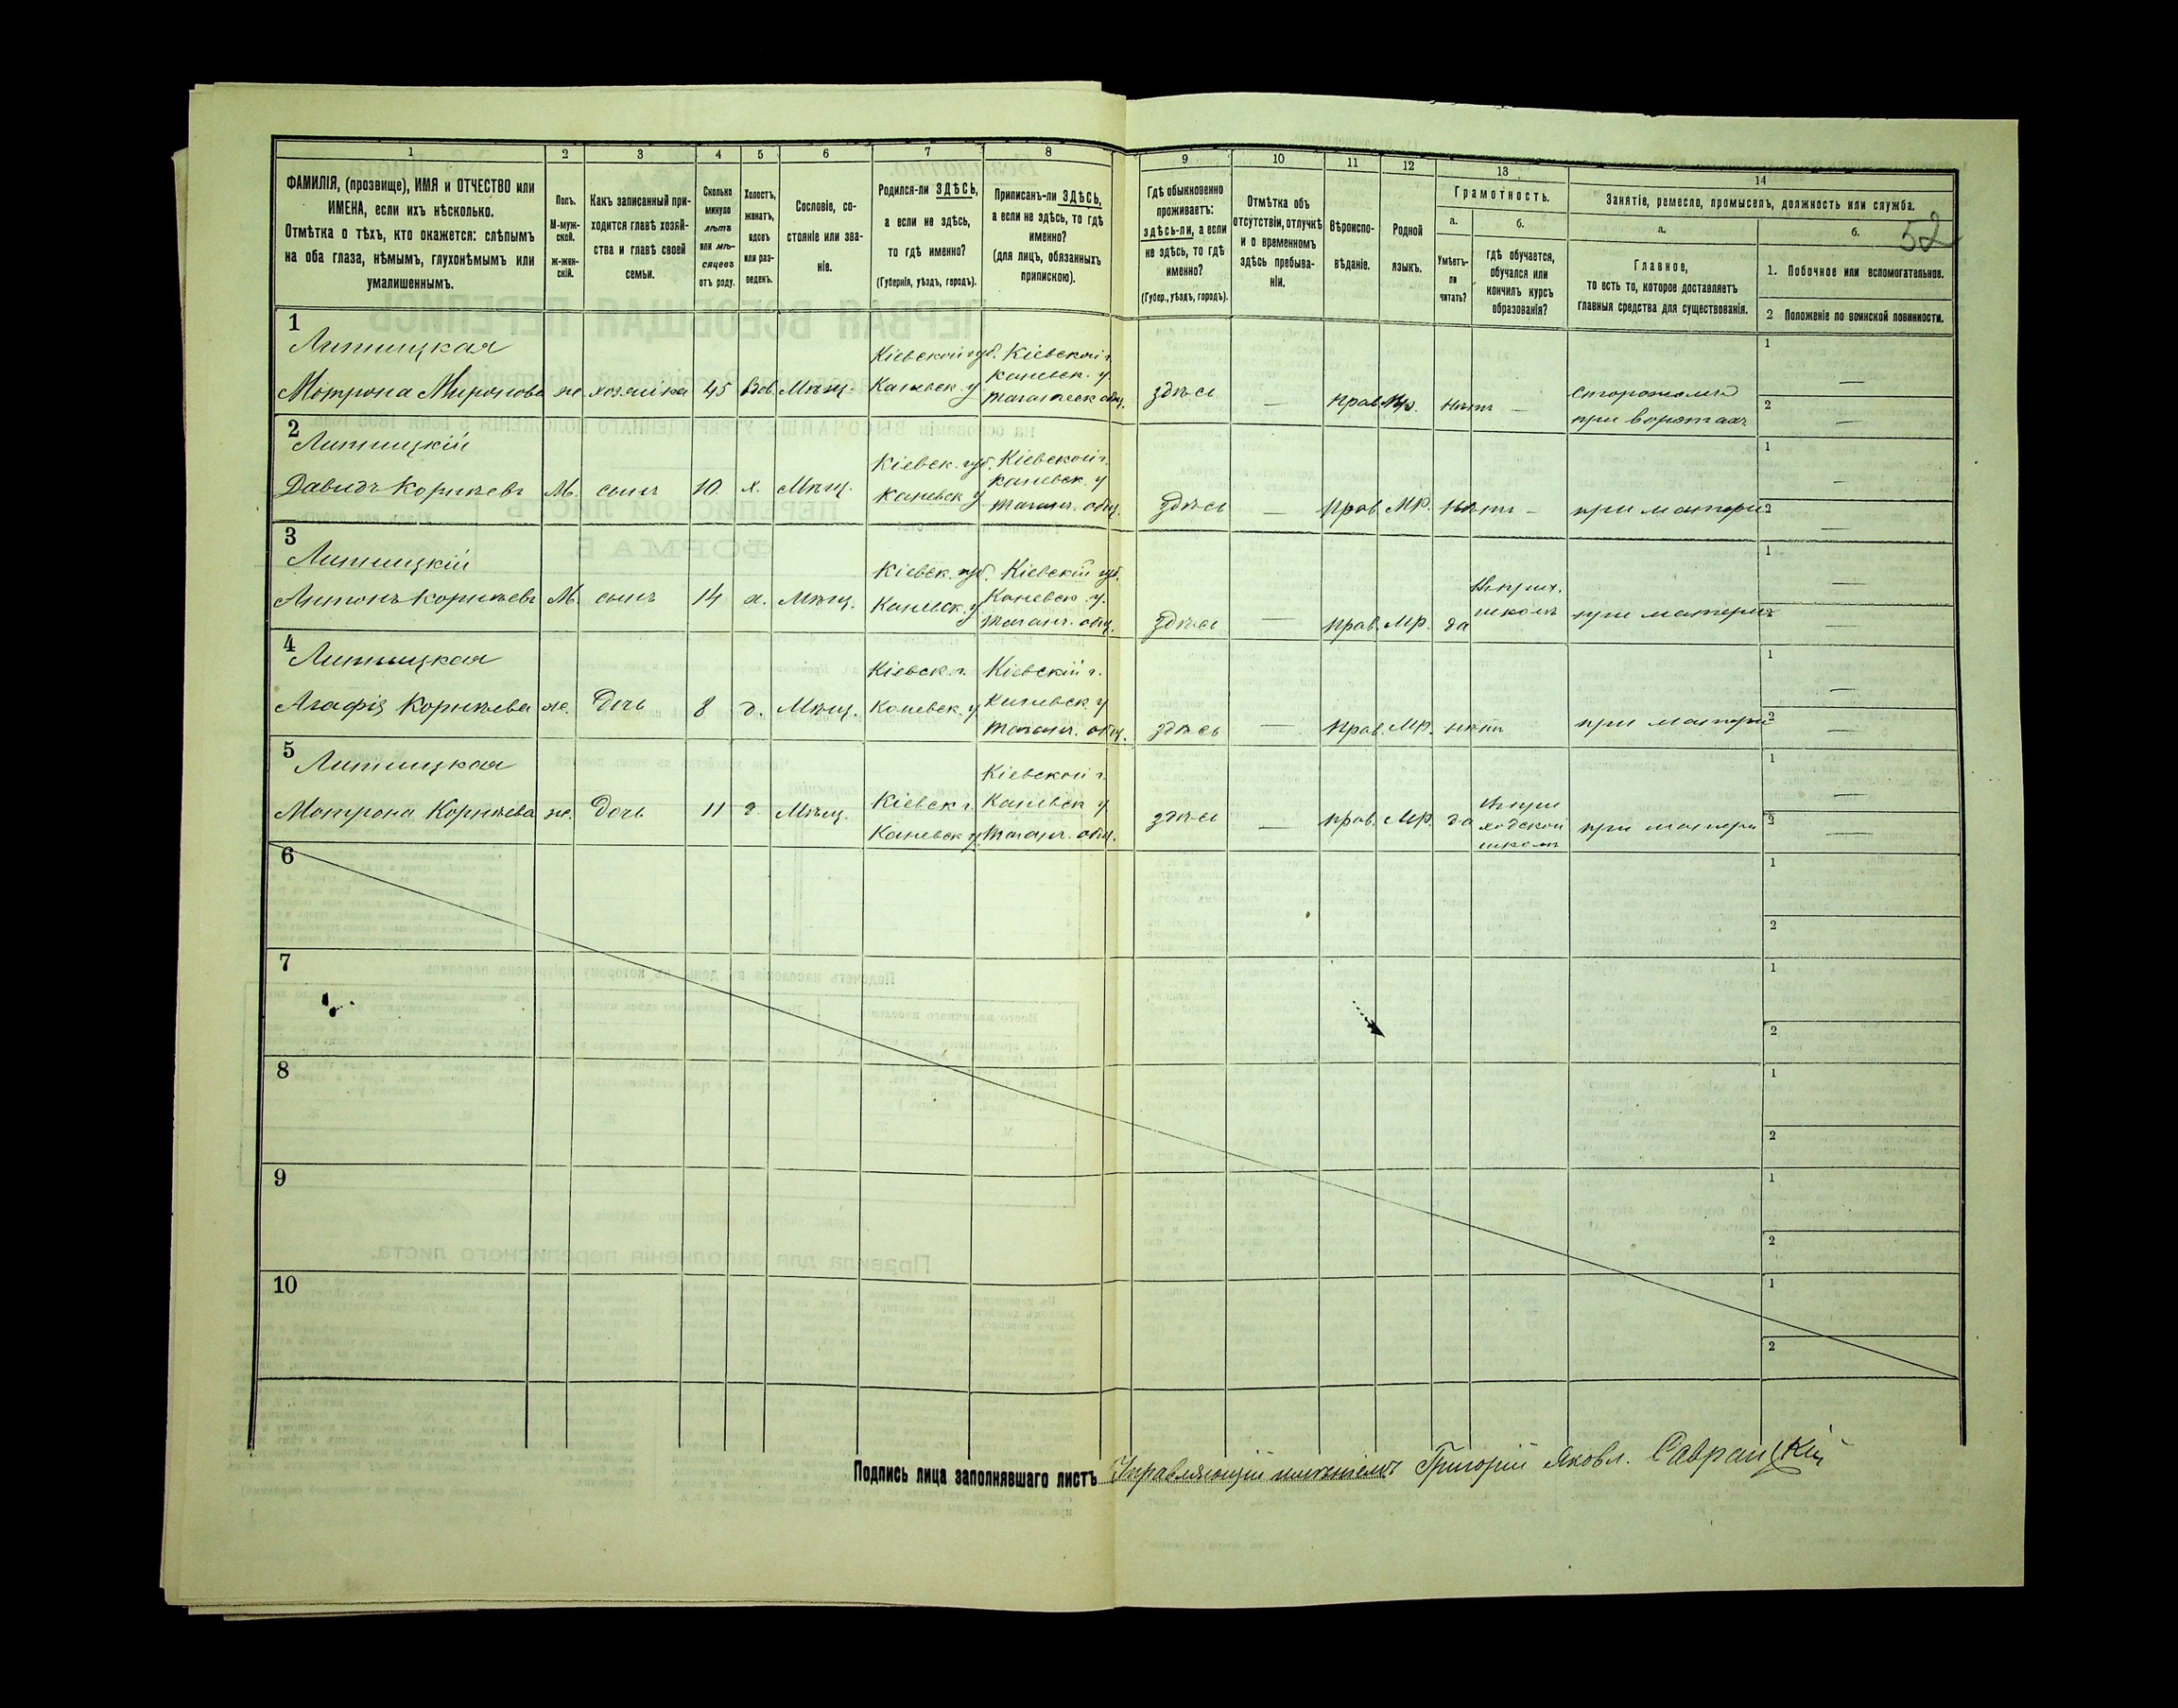 52
1 2 3 4 5 6 7 8 9 10 11 12 13 14
ФАМИЛІЯ, (прозвище), ИМЯ и ОТЧЕСТВО или
ИМЕНА, если ихъ нѣсколько.
Отмѣтка о тѣхъ, кто окажется: слѣпымъ
на оба глаза, нѣмымъ, глухонѣмымъ или
умалишеннымъ.
Полъ.
М-муж-
ской.
ж-жен-
скій.
Какъ записанный при-
ходится главѣ хозяй-
ства и главѣ своей
семьи.
Сколько
минуло
лѣтъ
или мѣ-
сяцевъ
отъ роду.
Холостъ,
женатъ,
вдовъ
или раз-
веденъ.
Сословіе, со-
стояніе или зва-
ніе.
Родился-ли ЗДѢСЬ,
а если не здѣсь,
то гдѣ именно?
(Губернія, уѣздъ, городъ).
Приписанъ-ли ЗДѢСЬ,
а если не здѣсь, то гдѣ
именно?
(для лицъ, обязанныхъ
припискою).
Гдѣ обыкновенно
проживаетъ:
здѣсь-ли, а если
не здѣсь, то гдѣ
именно?
(Губер., уѣздъ, городъ).
Отмѣтка объ
отсутствіи, отлучкѣ
и о временномъ
здѣсь пребыва-
ніи.
Вѣроиспо-
вѣданіе.
Родной
языкъ.
Грамотность.
а.
Умѣетъ-
ли
читать?
б.
Гдѣ обучается,
обучался или
кончилъ курсъ
образованія?
Занятіе, ремесло, промыселъ, должность или служба.
а.
Главное,
то есть то, которое доставляетъ
главныя средства для существованія.
б.
1. Побочное или вспомогательное.
2 Положеніе по воинской повинности.
1
Липицкая
Мотрона Миронова ж хозяйка 45 Вдов. Мѣщ.
Кіевской губ.
Каневск. у
Кіевской г.
Каневск. у
здѣсь — прав. Мр. нѣтъ —
при воротахъ
1 —
2 —
2
Липицкій
Давидъ Корнѣевъ М. сынъ 10 х. Мѣщ.
Кіевск. губ.
Каневск у
Кіевской г.
Каневск. у
здѣсь — прав. Мр. нѣтъ — при матери
1 —
2 —
3
Липицкій
Антонъ Корнѣевъ М. сынъ 14 х. Мѣщ.
Кіевск. губ.
Каневск. у
Кіевскій губ.
Каневск. у.
здѣсь — прав. Мр. да
школѣ
при матери
1 —
2 —
4
Липицкая
Агафія Корнѣева ж. дочь 8 д. Мѣщ.
Кіевск. г.
Каневск. у
Кіевскій г.
Каневск у
здѣсь — прав. Мр. нѣтъ при матери
1 —
2 —
5
Липицкая
Мотрона Корнѣева ж. дочь 11 д. Мѣщ.
Кіевск г.
Каневск у
Кіевской г.
Каневск у
здѣсь — прав. Мр. да
въ при
ходской
школѣ
при матери
1 —
2 —
6
1
2
7
1
2
8
1
2
9
1
2
10
1
2
Подпись лица заполнявшаго листъ Управляющій имѣніемъ Григорій Яковл. Савранцкій